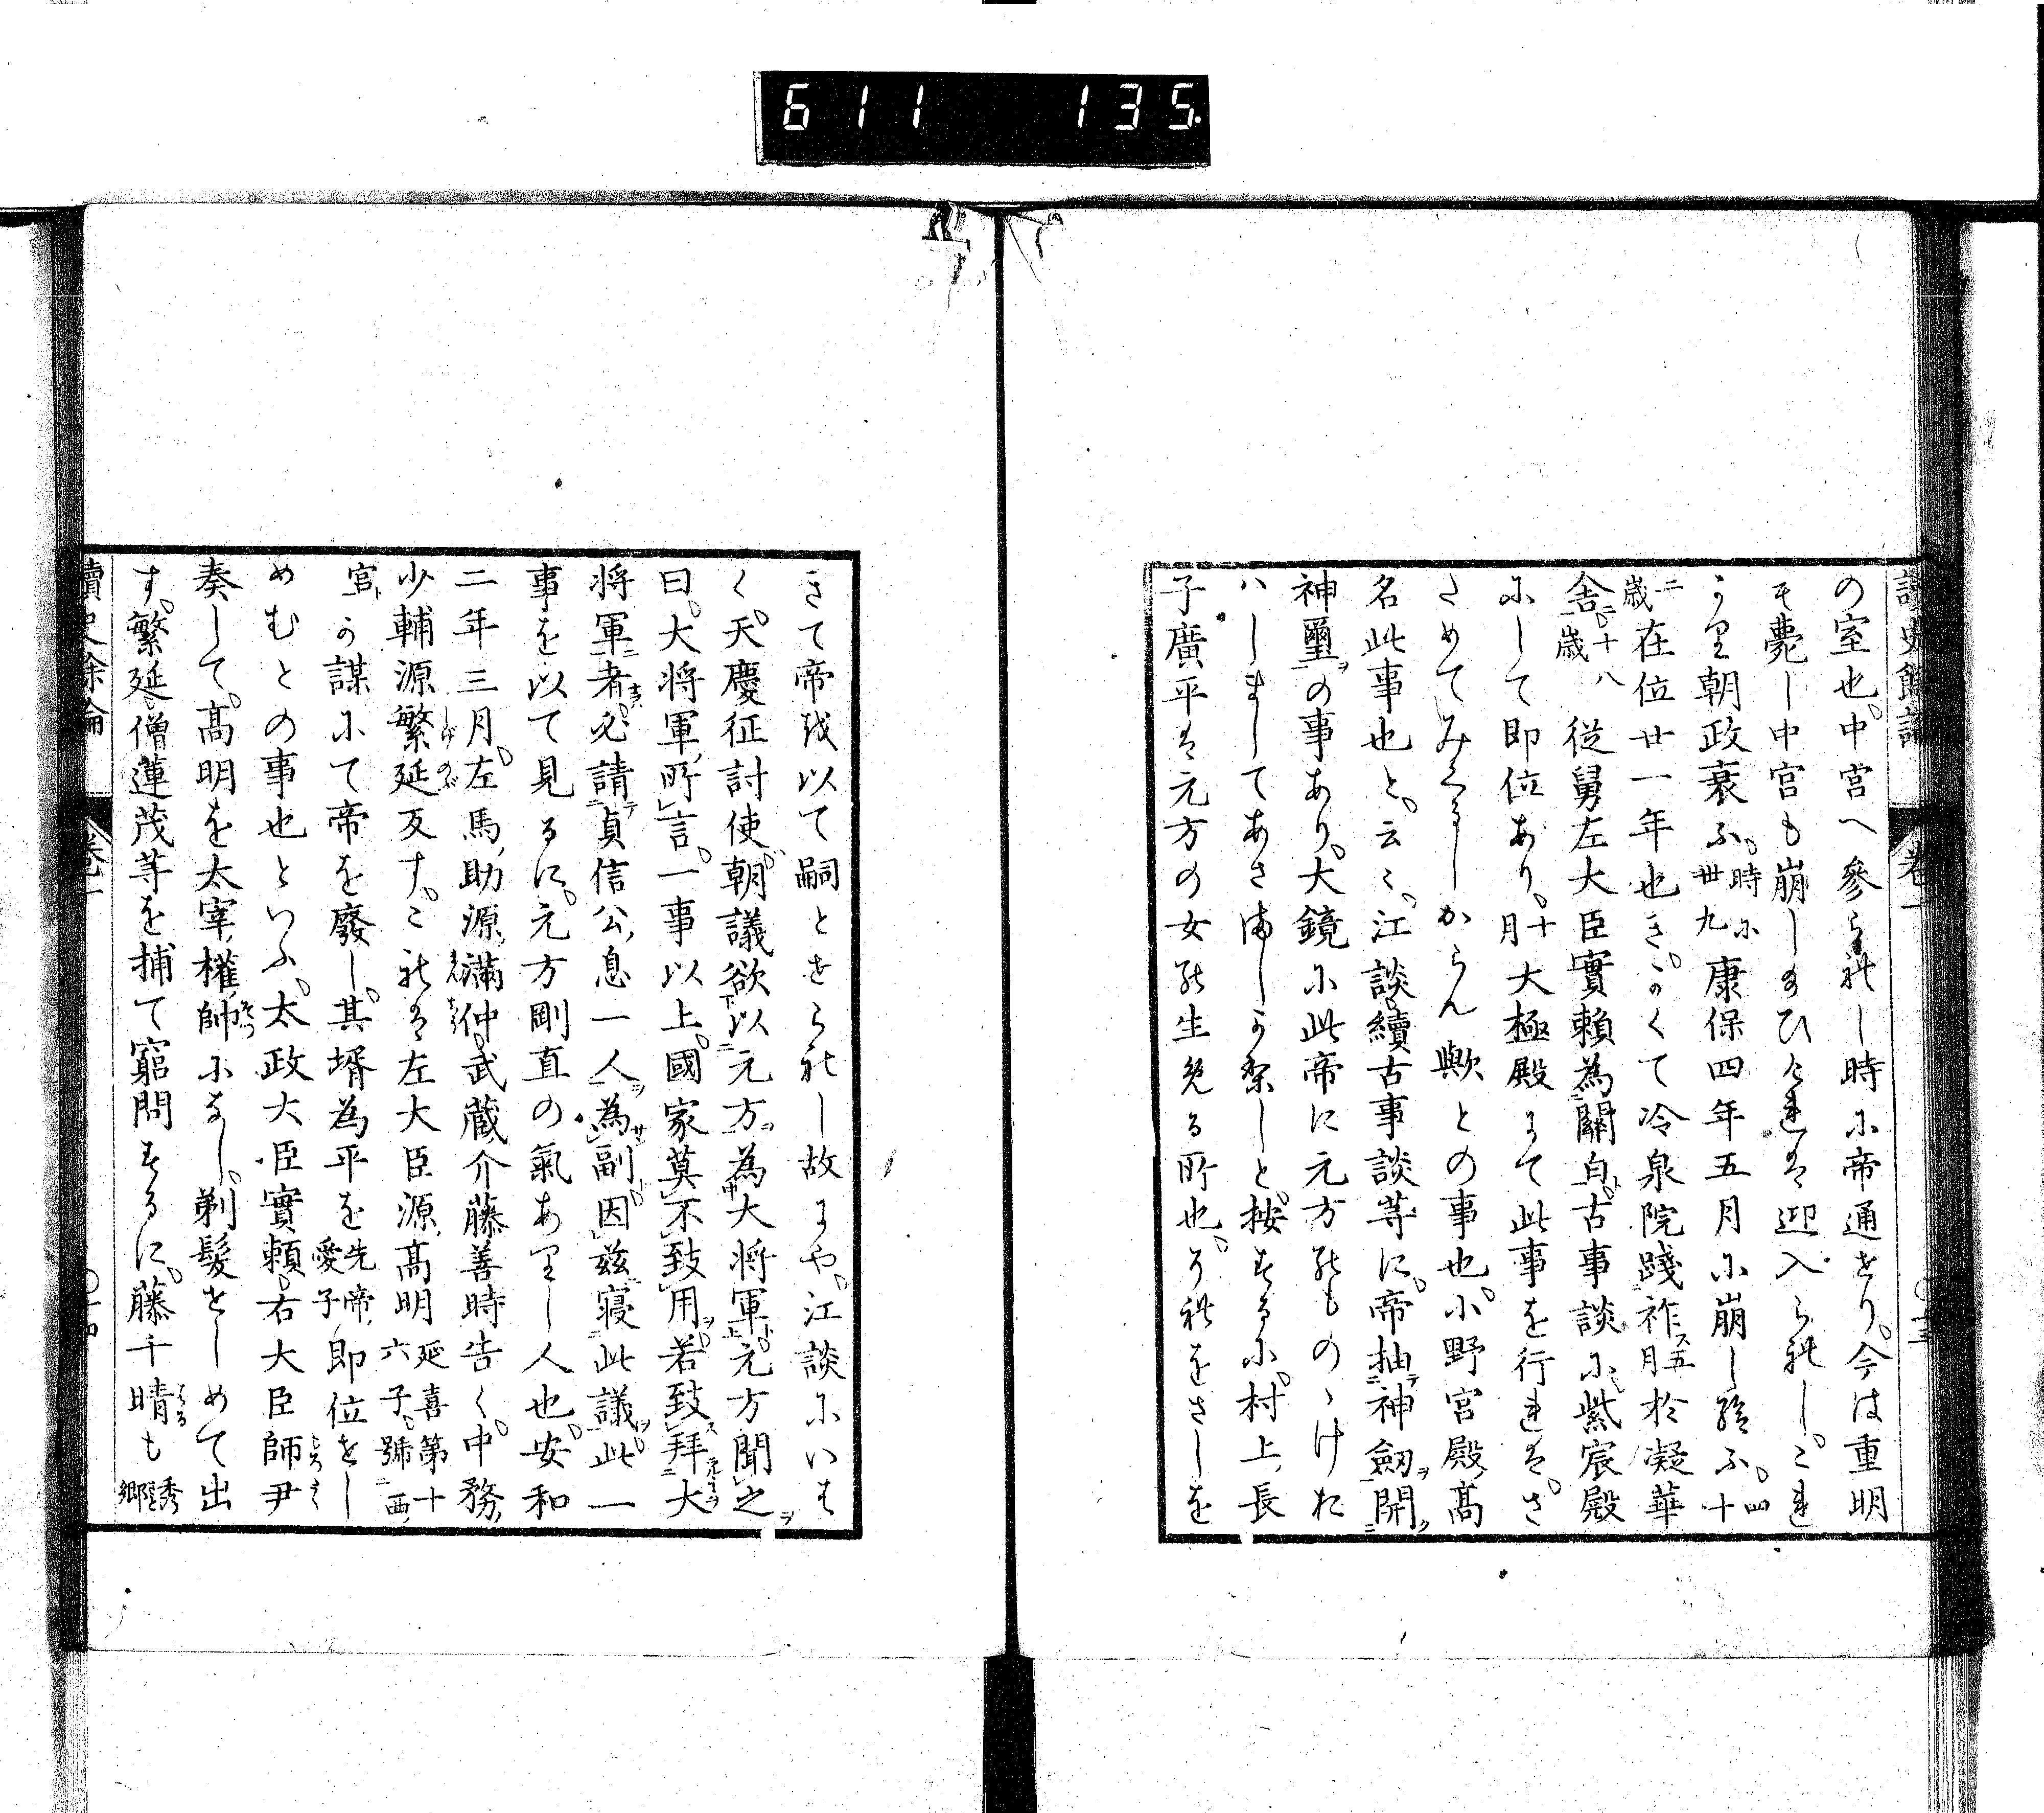 611 135.
讀史餘論 卷一 〇十三
の室也。中宮へ參られし時に帝通せり。今は重明
も薨し中宮も崩し給ひければ迎入られし。これ
より朝政衰ふ。時に卅九康保四年五月に崩し給ふ。四十
二歳在位廿一年也き。かくて冷泉院踐祚ス五月於凝華
舎ニ十八歳 従舅左大臣實賴為關白。古事談に紫宸殿
にして即位あり。十月大極殿にて此事を行れば。さ
さめてみくるしからん歟との事也。小野宮殿高
名此事也と。云々。江談續古事談等に。帝抽神劔開
神璽の事あり。大鏡に此帝に元方のものゝけお
ハしましてあさましかりしと。按するに。村上長
子廣平は元方の女の生める所也。それをさしを
きて帝を以て嗣とせられし故にや。江談にいは
く。天慶征討使朝議欲以元方為大将軍。元方聞之
曰。大将軍所言。一事以上。國家莫不致用。若致拜大
将軍者必請貞信公息一人為副因茲寢此議。此一
事を以て見るに。元方剛直の氣ありし人也。安和
二年三月。左馬助源滿仲。武蔵介藤善時告く。中務
少輔源繁延反す。これは左大臣源高明延喜第十六子。號西
宮か謀にて帝を廢し。其壻為平を先帝愛子即位せし
めむとの事也といふ。太政大臣實賴。右大臣師尹
奏して。高明を太宰權帥になし。剃髮せしめて出
す。繁延僧蓮茂等を捕て窮問するに。藤千晴も秀郷
讀史餘論 卷一 〇十四